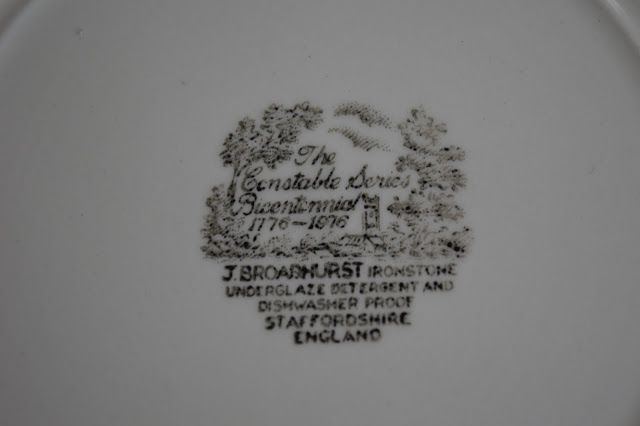 The
Constable Series
Bicentennial
1776-1976
J. BROADHURST IRONSTONE
UNDERGLAZE DETERGENT AND
DISHWASHER PROOF
STAFFORDSHIRE
ENGLAND